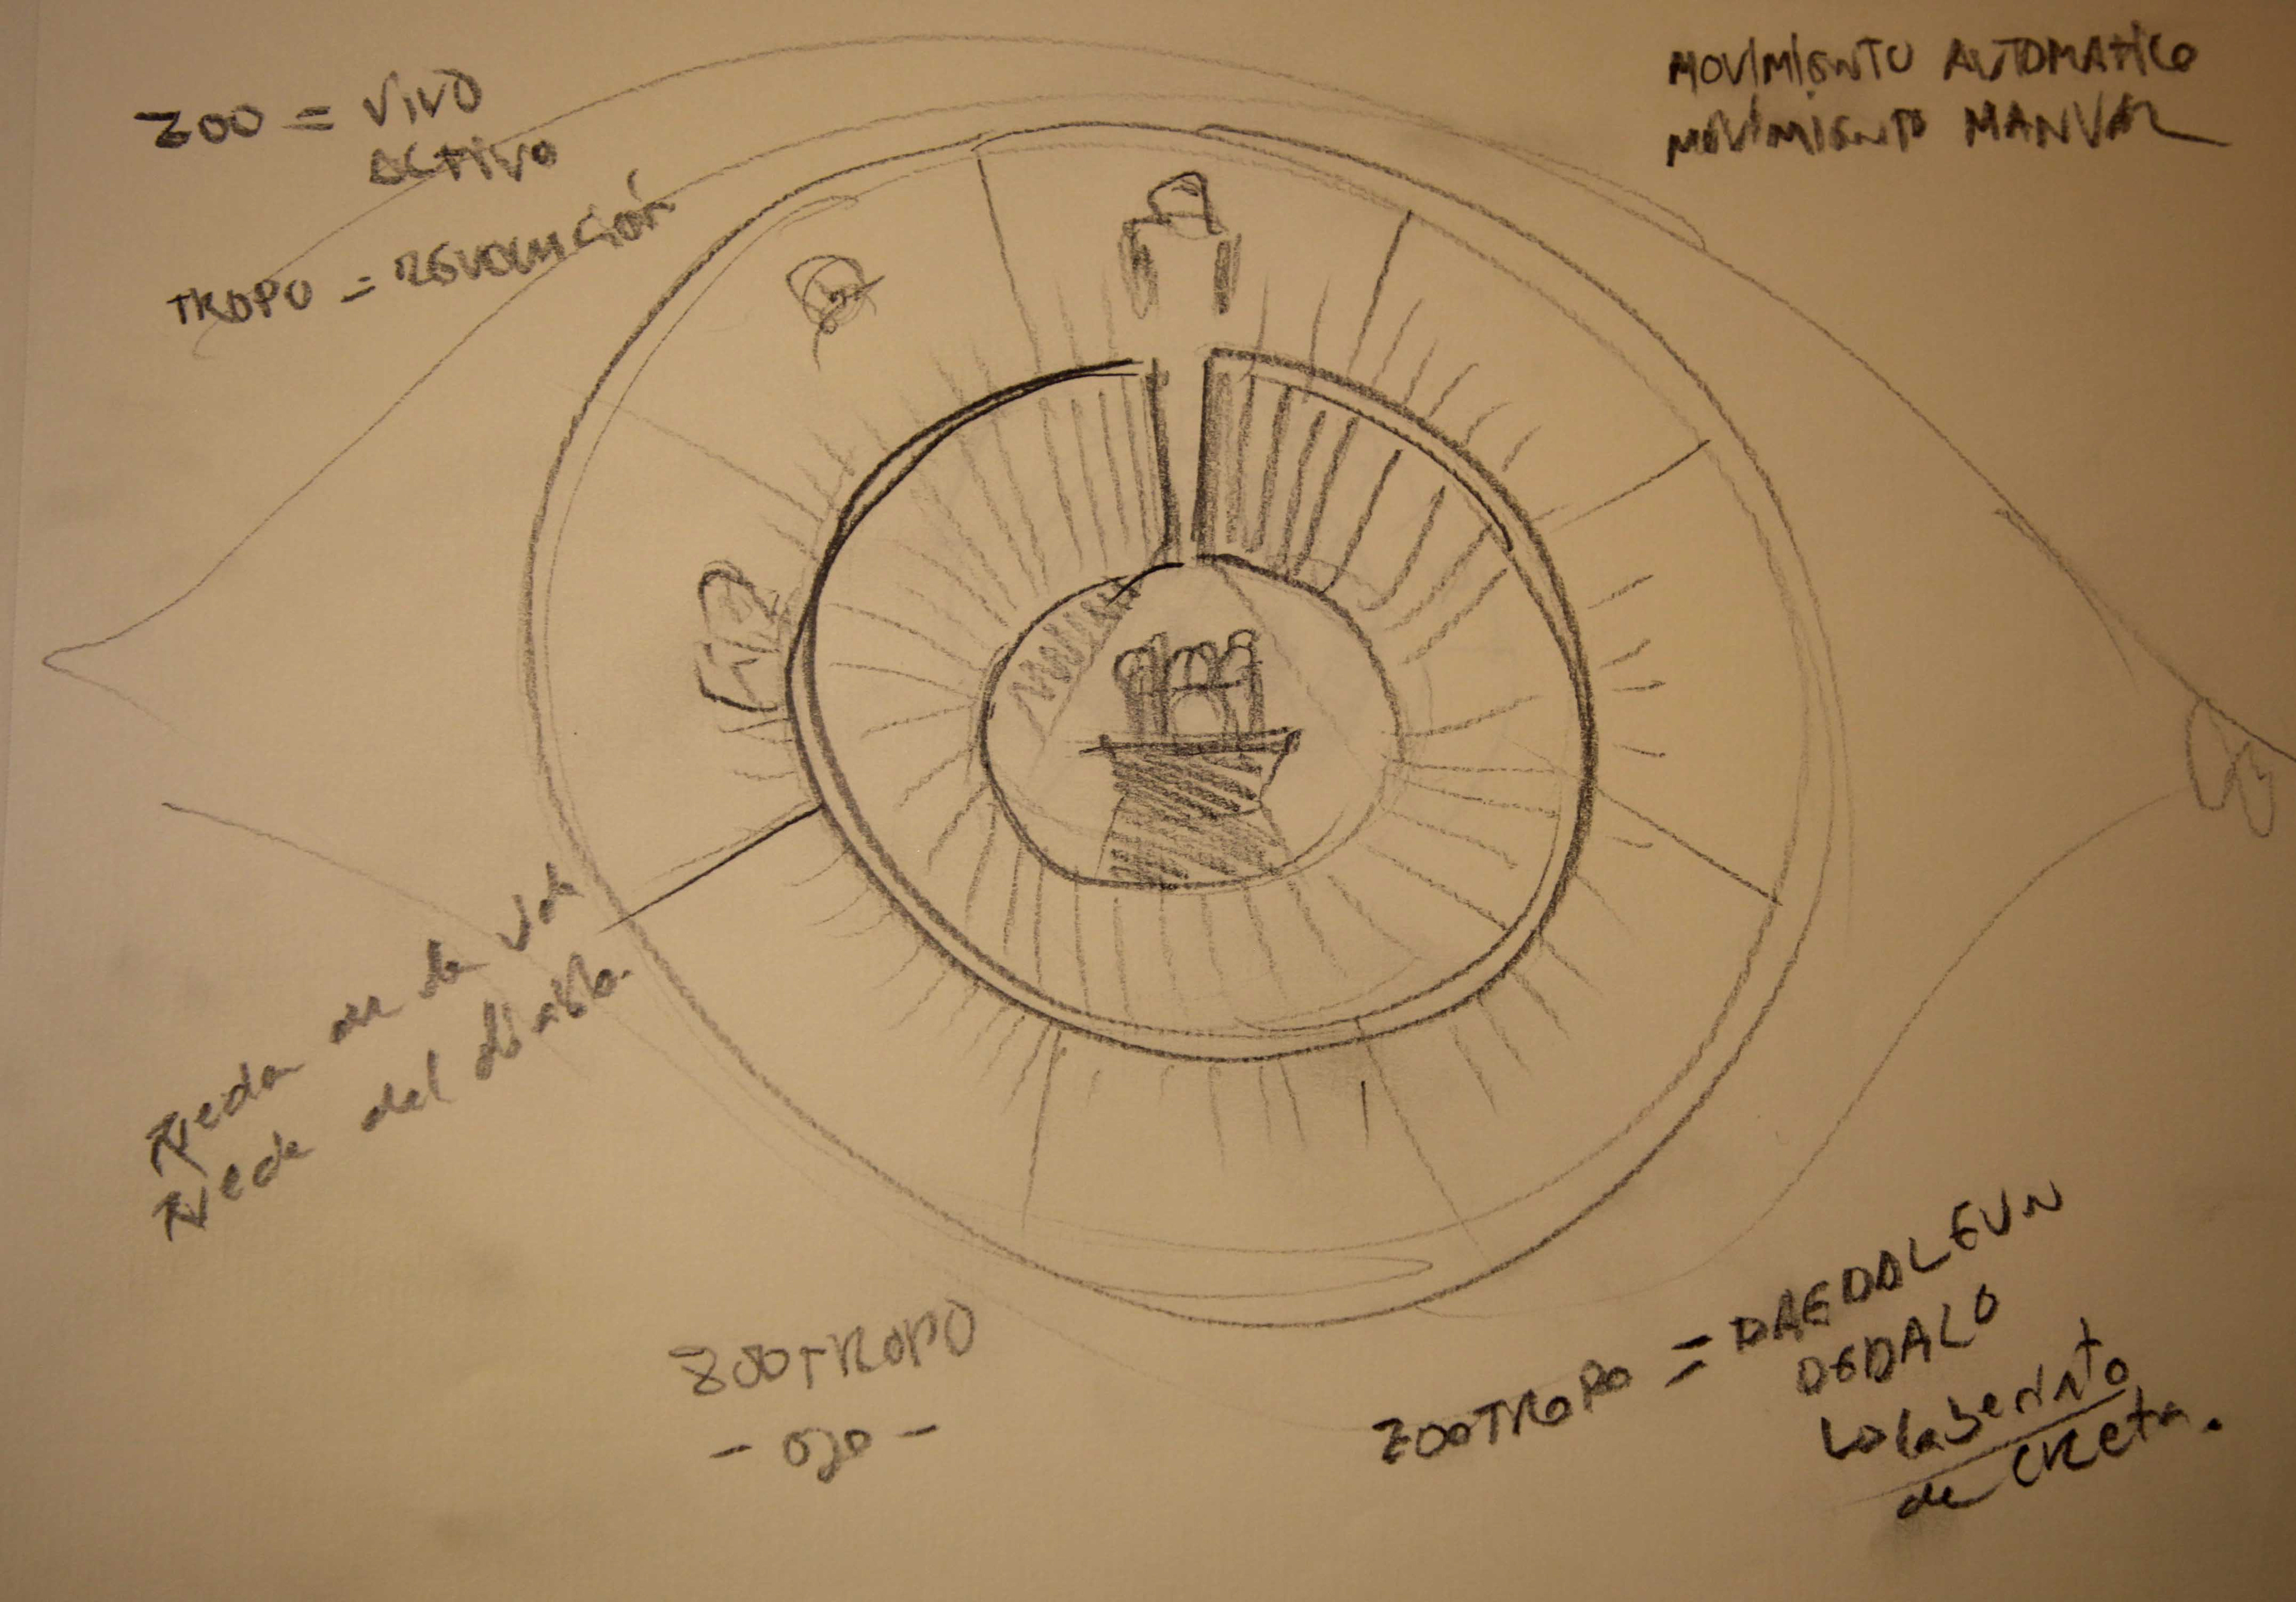 ZOO = VIVO
ACTIVO
TROPO = REVOLUCIÓN
MOVIMIENTO AUTOMATICO
MOVIMIENTO MANUAL
Rueda de la vida
Rueda del diablo.
ZOOTROPO
- OJO -
ZOOTROPO = DAEDALEUN
DEDALO
Lo laberinto
de CReta.